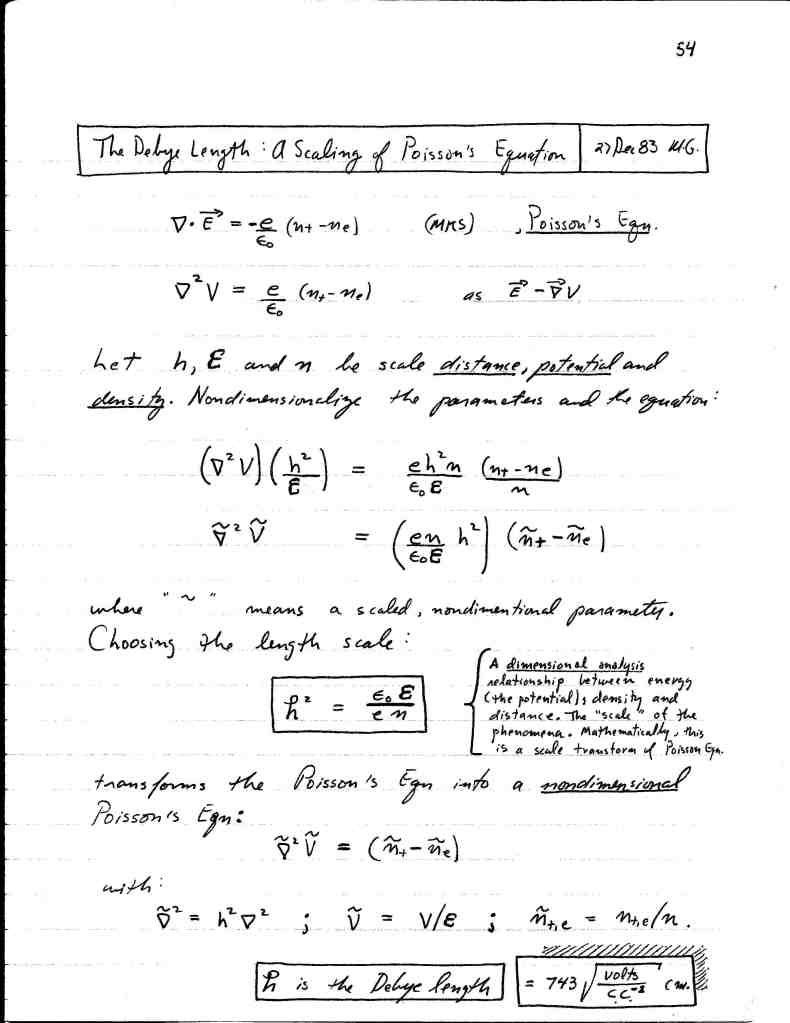 54
The Debye Length : A Scaling of Poisson's Equation 27 Dec 83 M.G.
∇·E⃗ = -e/ε₀ (n+ - ne) (MKS) , Poisson's Eqn.
∇²V = e/ε₀ (n+ - ne) as E⃗ - ∇⃗V
Let h, ℰ and n be scale distance, potential and
density. Nondimensionalize the parameters and the equation:
(∇²V)(h²/ℰ) = eh²n/ε₀ℰ (n+ - ne)/n
∇̃² Ṽ = (en/ε₀ℰ h²) (ñ+ - ñe)
where "~" means a scaled, nondimentional parameter.
Choosing the length scale:
h² = ε₀ℰ/en
A dimensional analysis
relationship between energy
(the potential), density and
distance. The "scale" of the
phenomena. Mathematically, this
is a scale transform of Poisson Eqn.
transforms the Poisson's Eqn into a nondimensional
Poisson's Eqn:
∇̃²Ṽ = (ñ+ - ñe)
with:
∇̃² = h²∇² ; Ṽ = V/ℰ ; ñ+,e = n+,e/n.
h is the Debye length = 743 √(volts/c.c⁻¹) cm.